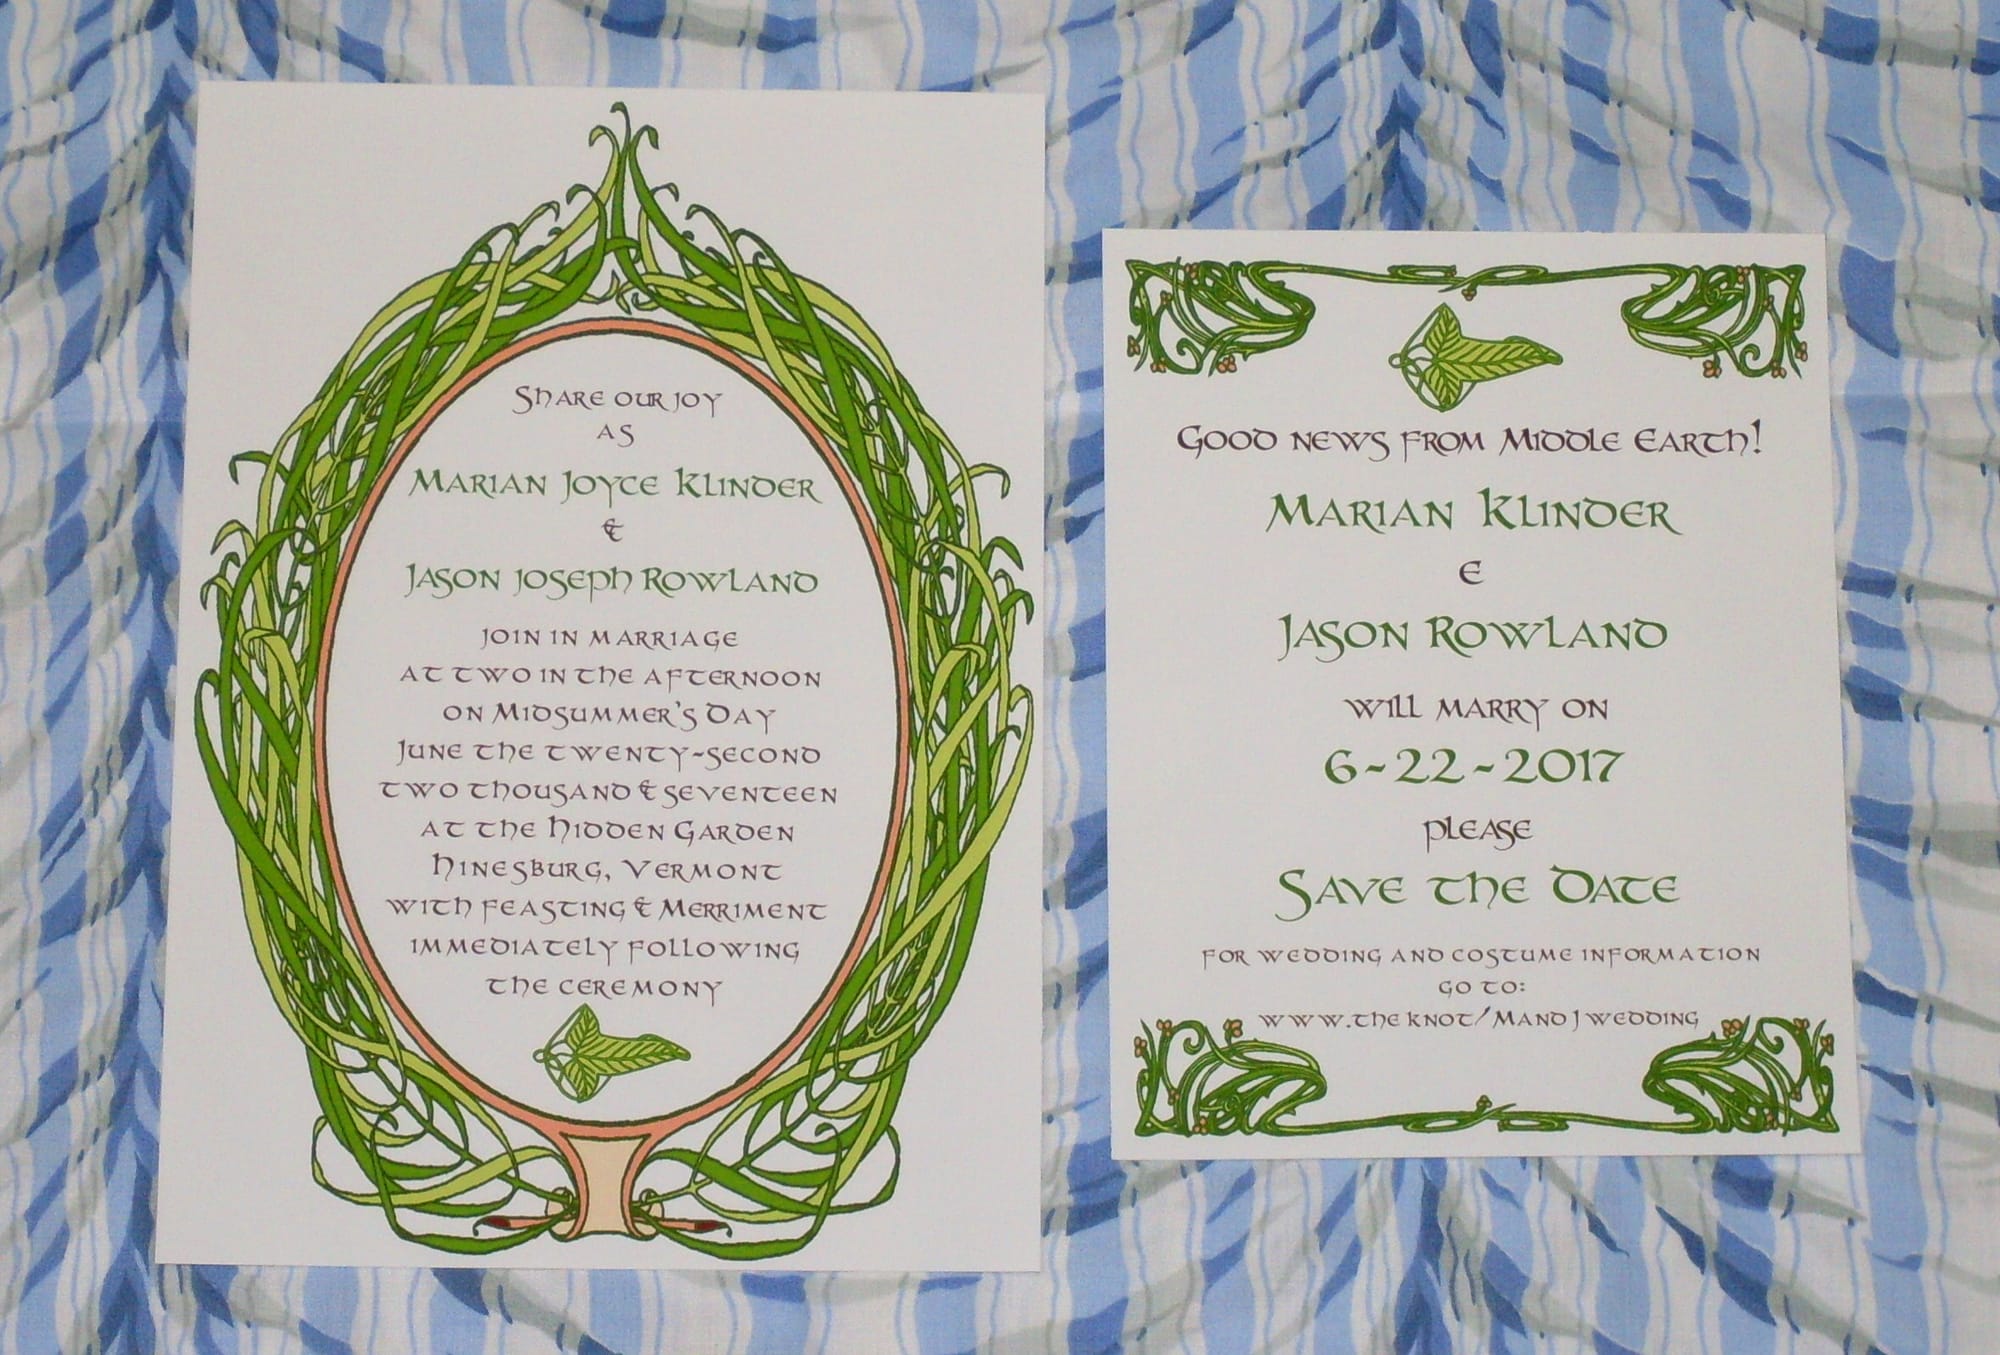 Share our joy
as
Marian Joyce Klinder
&
Jason Joseph Rowland
join in marriage
at two in the afternoon
on Midsummer's Day
June the twenty-second
two thousand & seventeen
at the Hidden Garden
Hinesburg, Vermont
with feasting & Merriment
immediately following
the ceremony
Good news from Middle Earth!
Marian Klinder
&
Jason Rowland
will marry on
6-22-2017
please
Save the Date
for wedding and costume information
go to:
www.the knot/MandJwedding